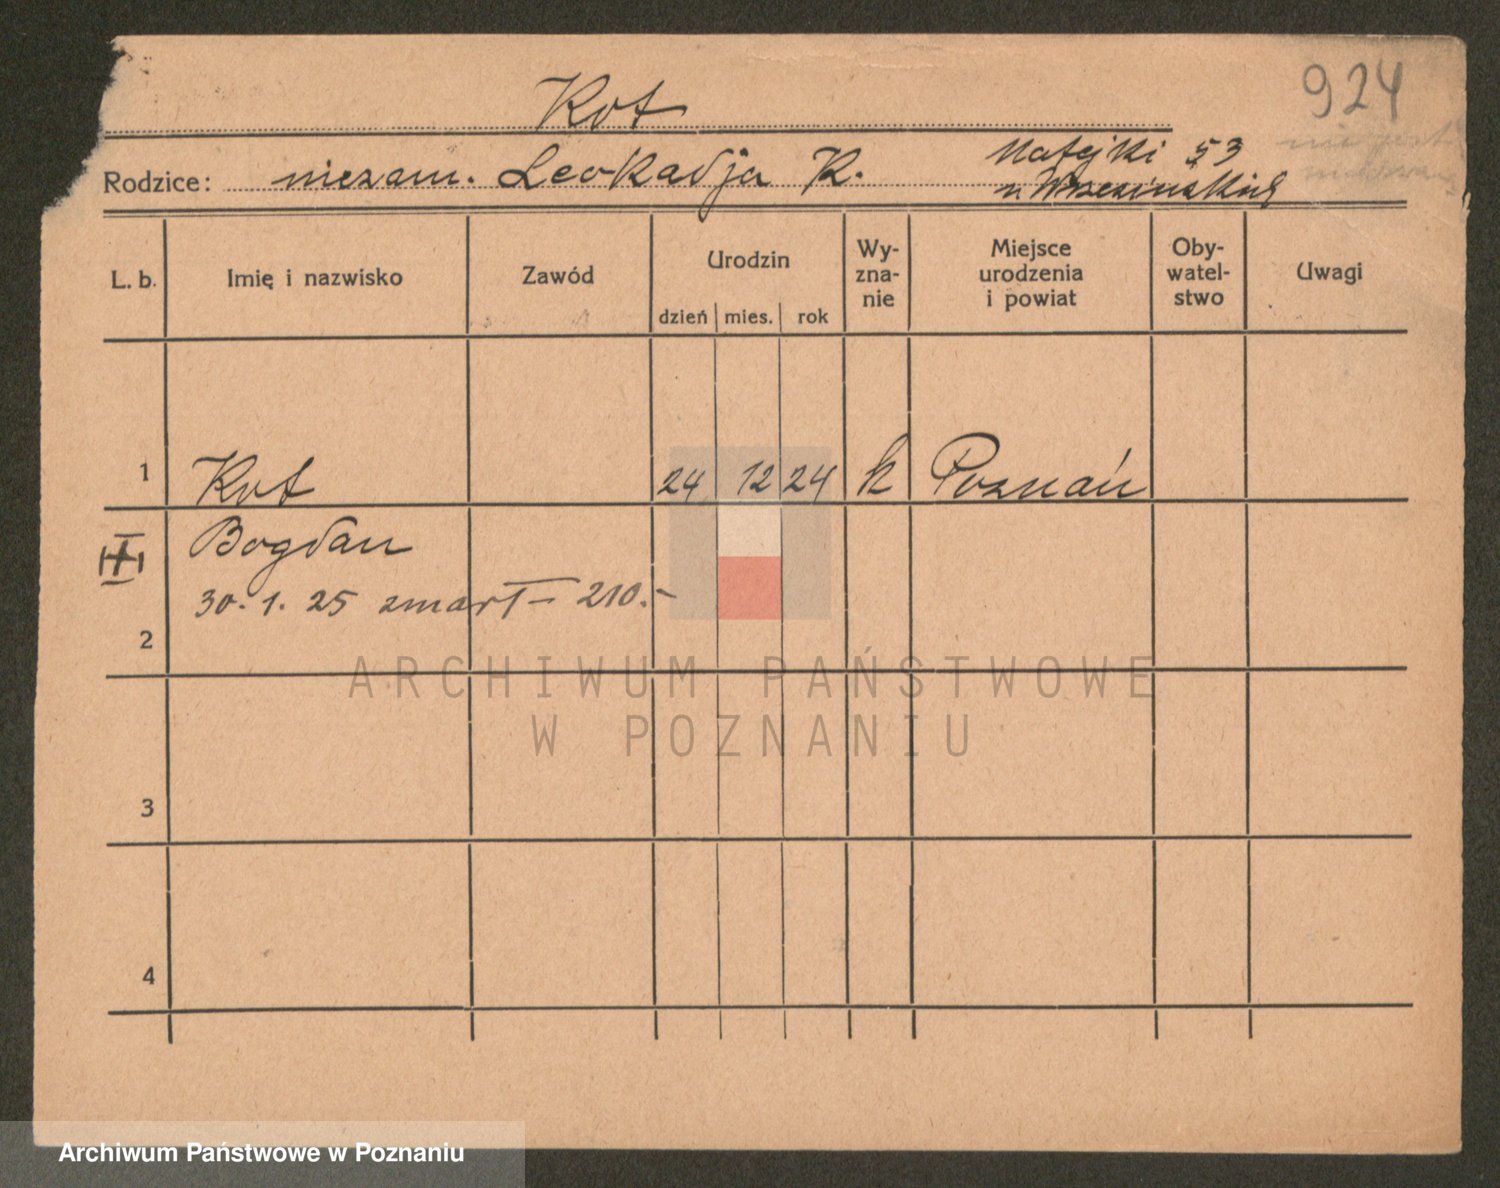 924
Kot
Rodzice: niezam. Leokadja K.
Matejki 53
u Wrzesińskich
nie jest
L. b.
Imię i nazwisko
Zawód
Urodzin
dzień mies. rok
Wy-
zna-
nie
Miejsce
urodzenia
i powiat
Oby-
watel-
stwo
Uwagi
1 Kot 24 12 24 k Poznań
Bogdan
30. 1. 25 zmarł – 210.-
2
ARCHIWUM PAŃSTWOWE
W POZNANIU
3
4
Archiwum Państwowe w Poznaniu